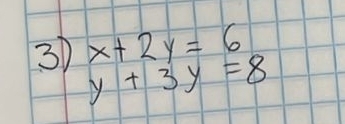 3) x + 2y = 6
y + 3y = 8